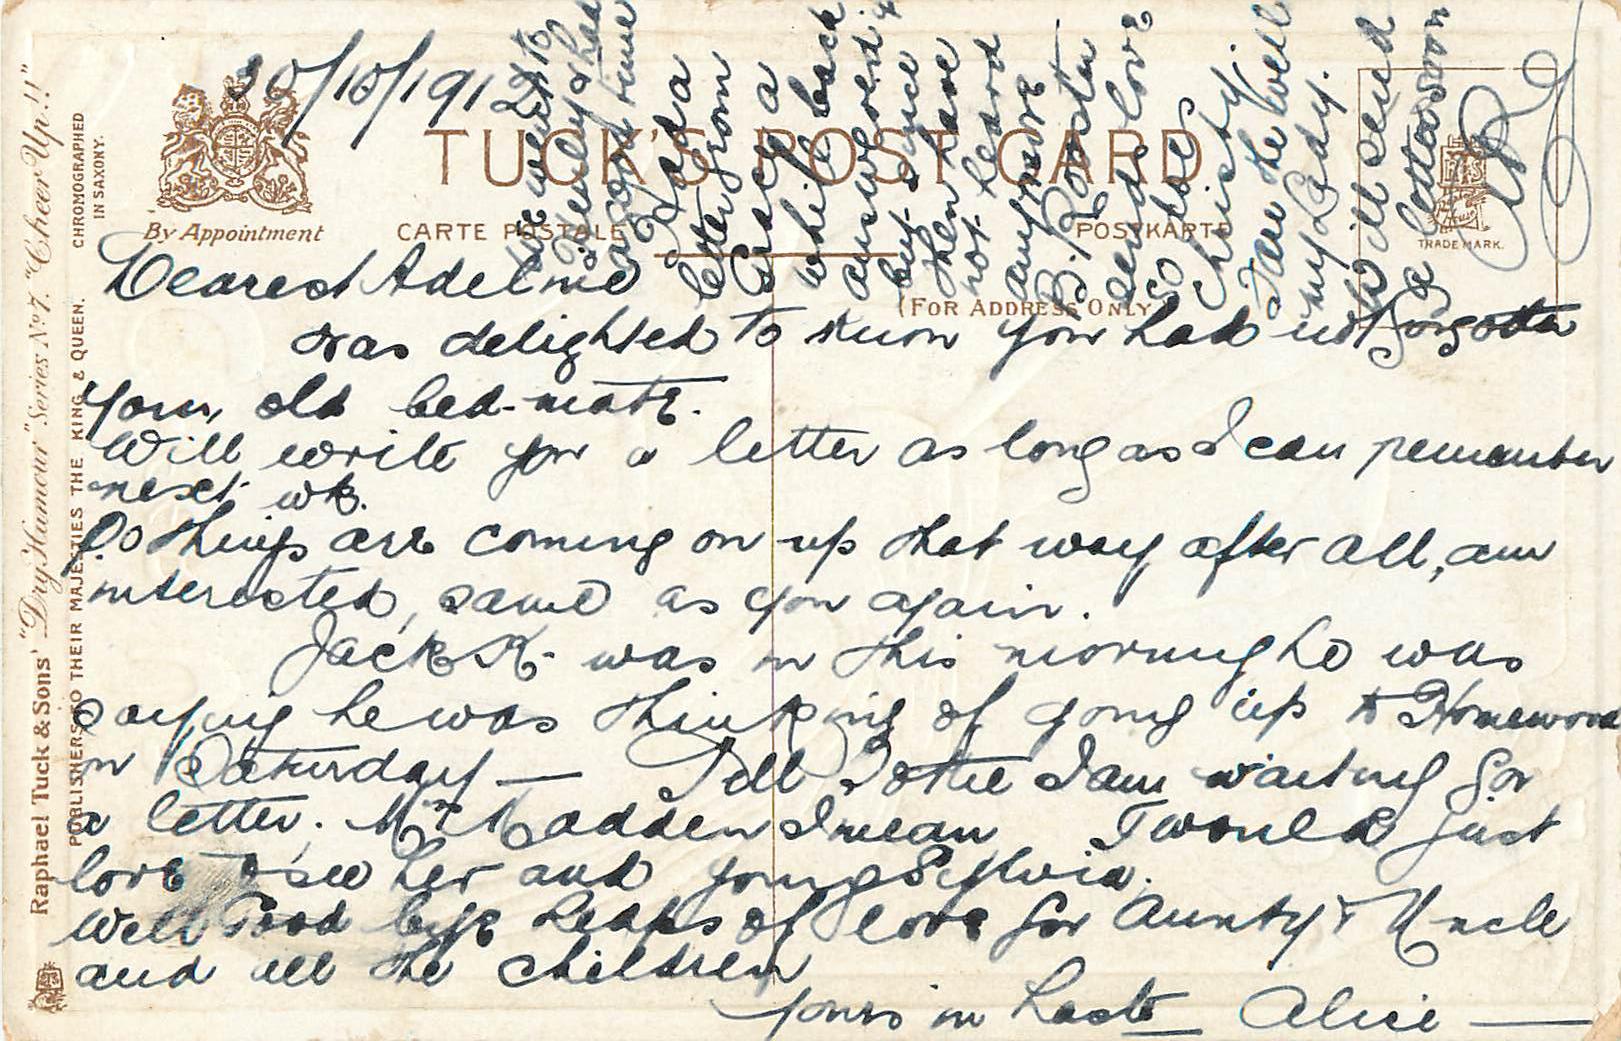 30/10/1912
TUCK'S POST CARD
By Appointment
CARTE POSTALE
POSTKARTE
(FOR ADDRESS ONLY)
TRADE MARK.
CHROMOGRAPHED
IN SAXONY.
Raphael Tuck & Sons' "Dry Humour" Series No 7. "Cheer Up!!"
PUBLISHERS TO THEIR MAJESTIES THE KING & QUEEN.
Dearest Adelmie
was delighted to know you had not forgotten
your old bed-mate.
Will write you a letter as long as I can remember
next wk.
So things are coming on up that way after all, am
interested, same as you again.
Jack K- was in this morning he was
saying he was thinking of going up to Homewood
on Saturday — Tell Dottie I am waiting for
a letter. Mrs Madden I mean I would just
love to see her and young Sylvia.
Well Good bye heaps of love for Aunty & Uncle
and all the children
Yours in haste Alice —
We went to
& had
a good time
Had a
letter from
Grace a
while back
answered it
but since
then have
not heard
any more
send love
so does
Christy
Fare the well
my Lady.
Will send
a letter soon